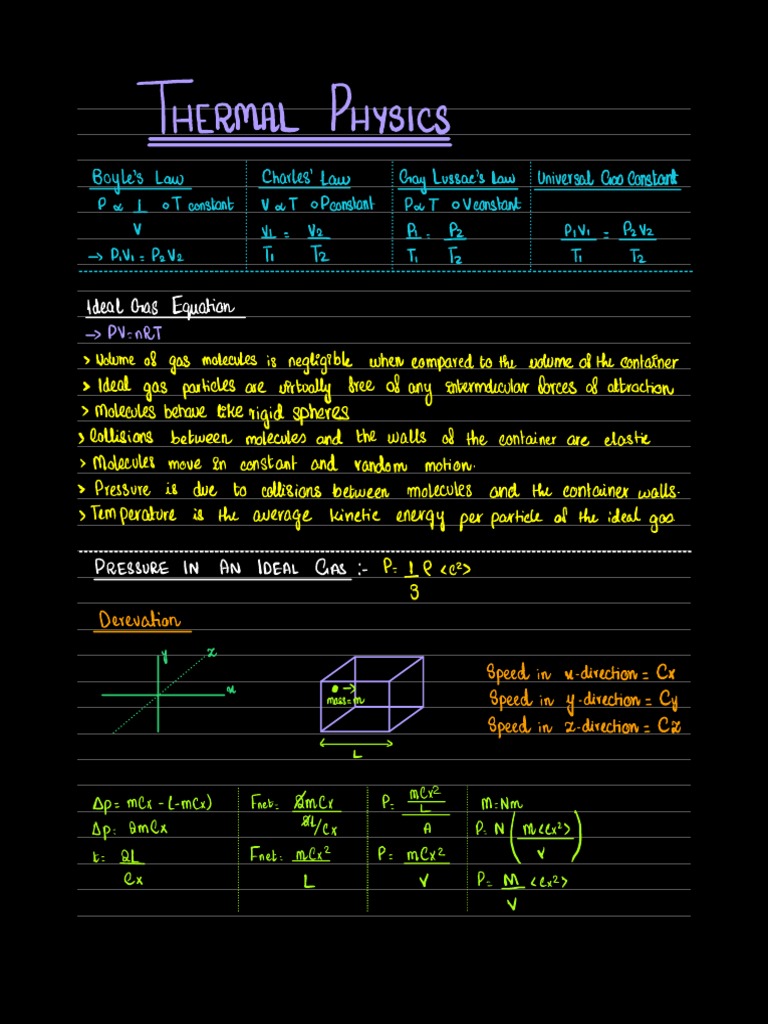 THERMAL PHYSICS
Boyle's Law
P ∝ 1/V ∘ T constant
→ P₁V₁ = P₂V₂
Charles' Law
V ∝ T ∘ P constant
V₁/T₁ = V₂/T₂
Gay Lussac's Law
P ∝ T ∘ V constant
P₁/T₁ = P₂/T₂
Universal Gas Constant
P₁V₁/T₁ = P₂V₂/T₂
Ideal Gas Equation
→ PV=nRT
> Volume of gas molecules is negligible when compared to the volume of the container
> Ideal gas particles are virtually free of any intermolecular forces of attraction
> Molecules behave like rigid spheres
> Collisions between molecules and the walls of the container are elastic
> Molecules move in constant and random motion.
> Pressure is due to collisions between molecules and the container walls.
> Temperature is the average kinetic energy per particle of the ideal gas
PRESSURE IN AN IDEAL GAS :- P = 1/3 ρ <c²>
Derevation
y
z
x
mass=m
L
Speed in x-direction = Cx
Speed in y-direction = Cy
Speed in z-direction = Cz
Δp = mCx - (-mCx)
Δp = 2mCx
t = 2L/Cx
Fnet = 2mCx / 2L/Cx
Fnet = mCx²/L
P = mCx²/L / A
P = mCx²/V
M=Nm
P = N (m<Cx²>/V)
P = M/V <Cx²>